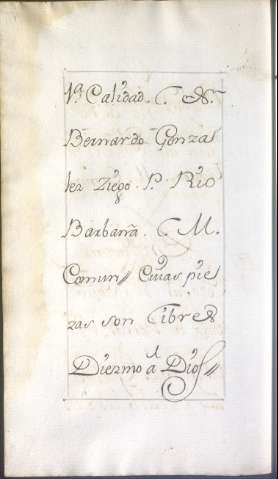 1ª Calidad. C. N.
Bernardo Gonza
lez Ziego. P. Rio
Barbarâ. C. M.
Comun// Cuias pie
zas son Libres
Diezmo a Dios//